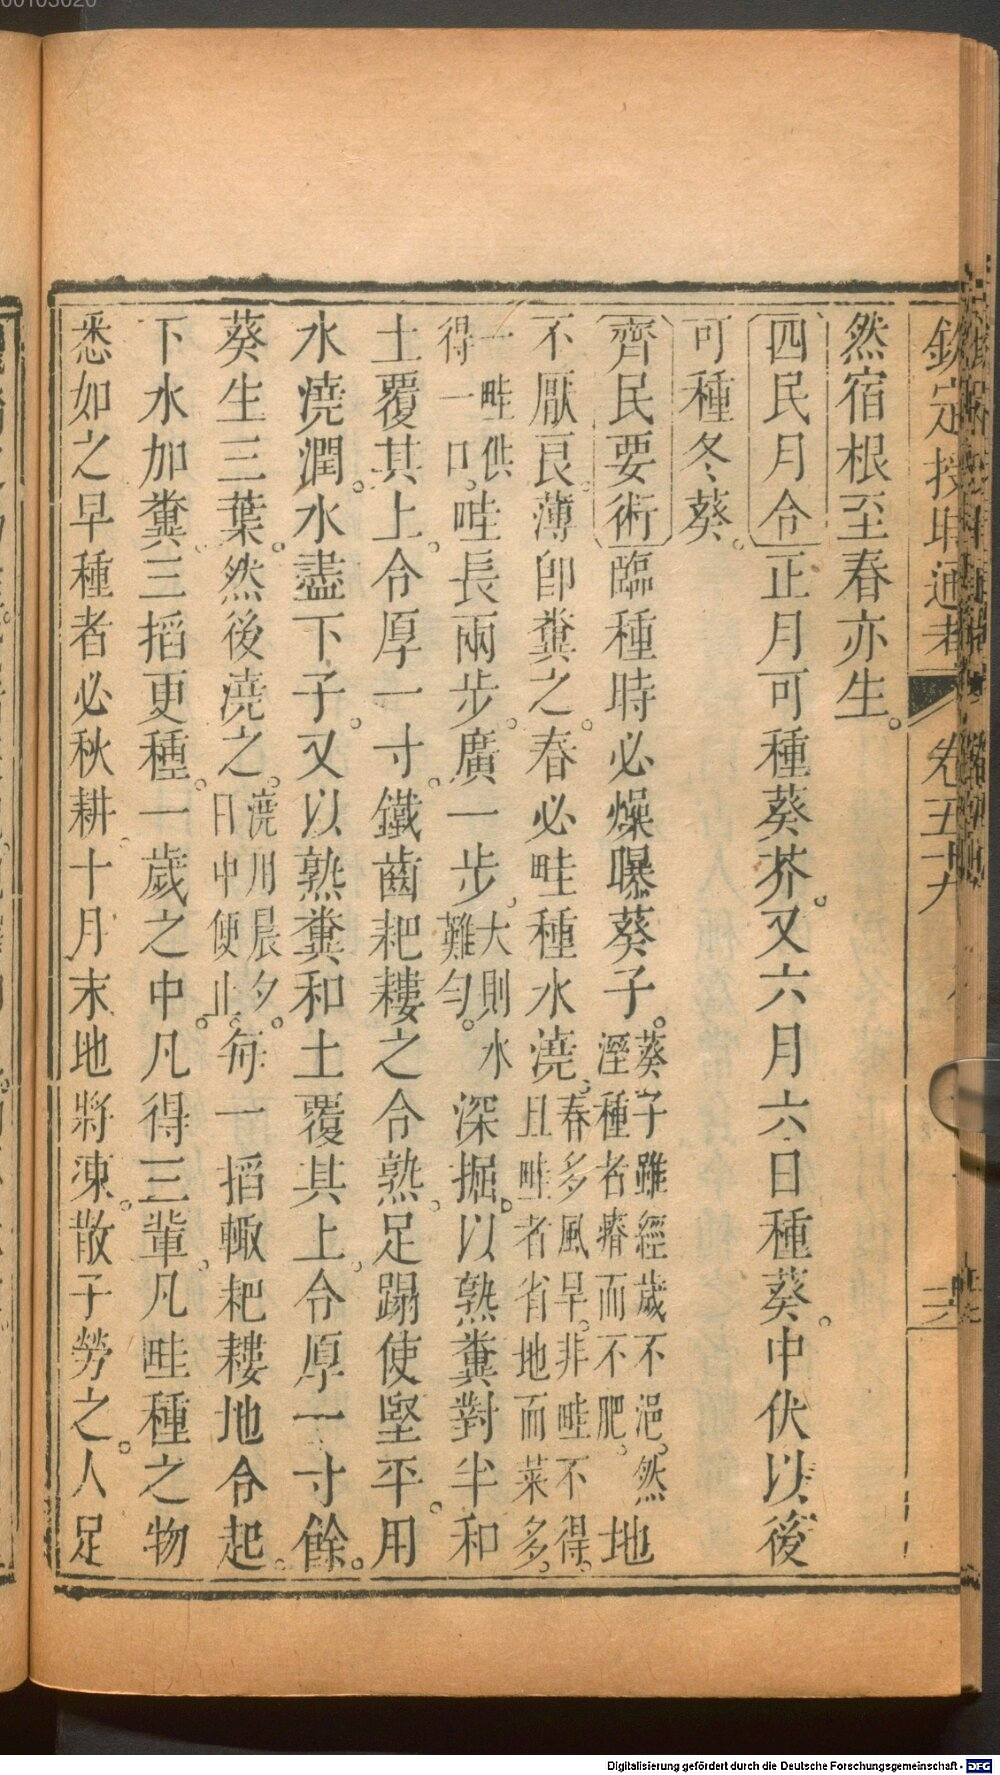 00103020
欽定授時通考 卷五十九
然宿根至春亦生。
四民月令正月可種葵芥。又六月六日種葵。中伏以後
可種冬葵。
齊民要術臨種時必燥曝葵子。葵子雖經歲不浥。然溼種者瘠而不肥。地
不厭良。薄卽糞之。春必畦種水澆。春多風旱。非畦不得。且畦者省地而菜多。
一畦供得一口。畦長兩步。廣一步。大則水難勻。深掘。以熟糞對半和
土覆其上。令厚一寸。鐵齒耙耬之令熟。足蹋使堅平。用
水澆潤。水盡下子。又以熟糞和土覆其上。令厚一寸餘。
葵生三葉。然後澆之。澆用晨夕。日中便止。每一搯輙耙耬地令起。
下水加糞。三搯更種。一歲之中凡得三輩。凡畦種之物
悉如之早種者必秋耕。十月末地將凍。散子勞之。人足
Digitalisierung gefördert durch die Deutsche Forschungsgemeinschaft - DFG